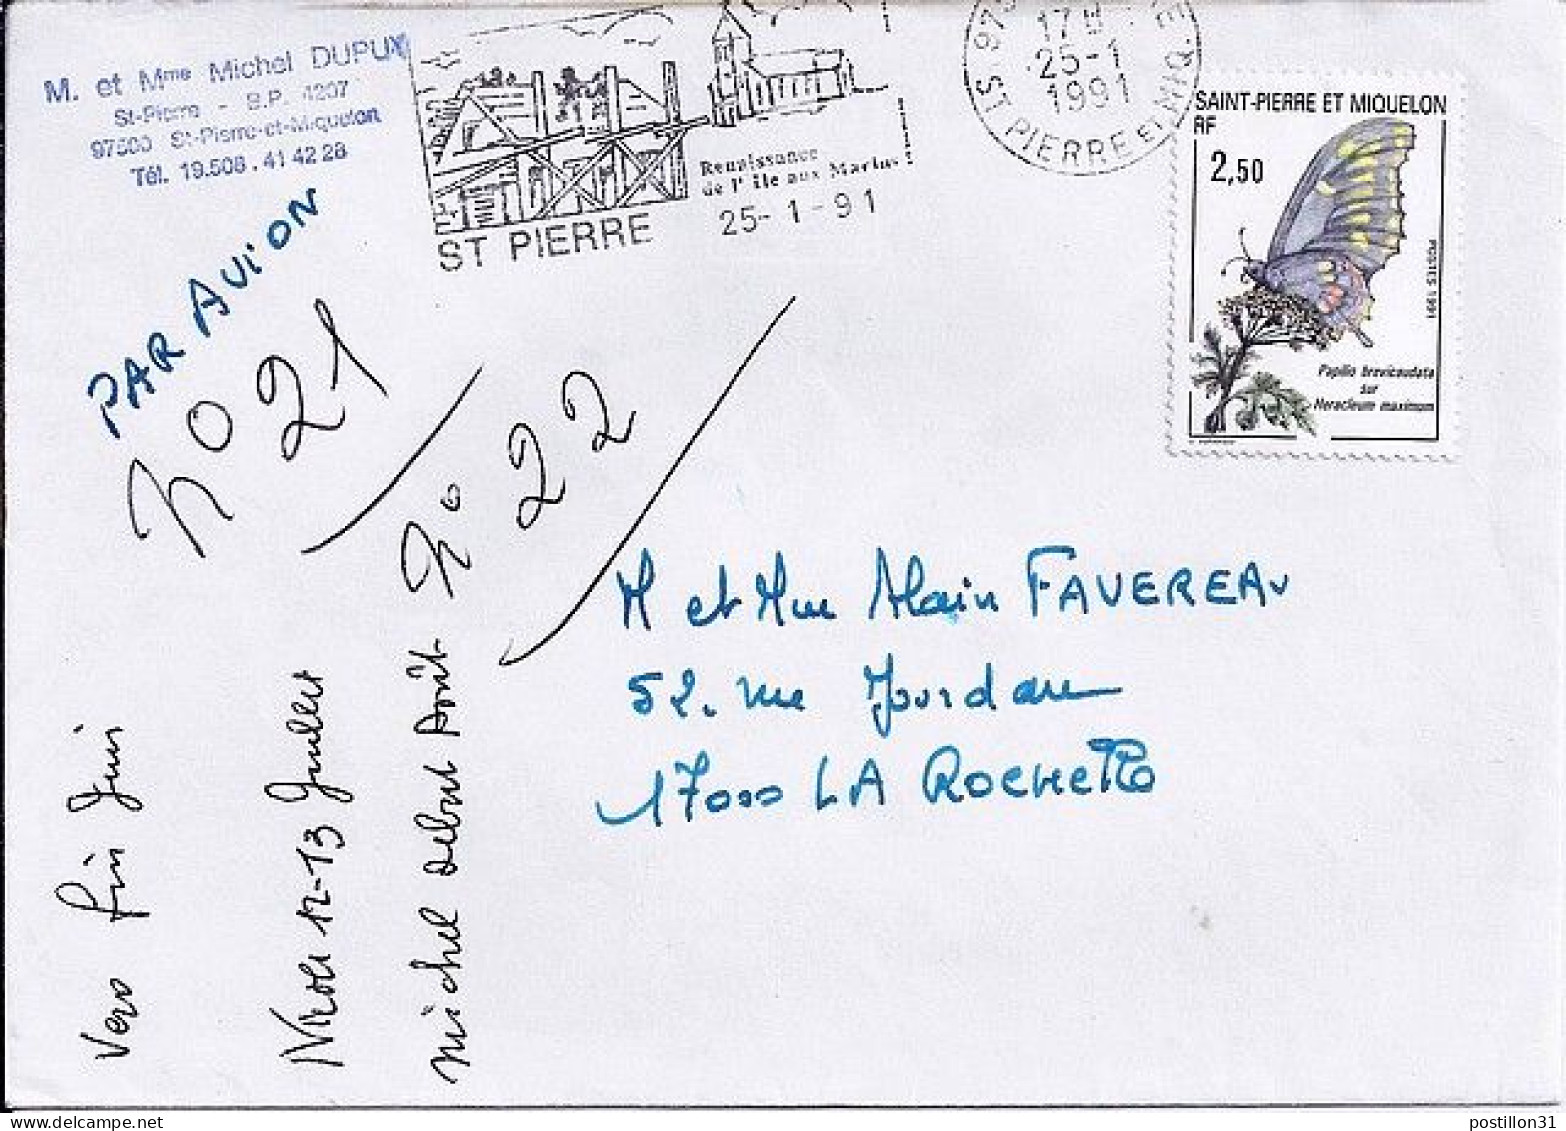 M. et Mme Michel DUPUY
St-Pierre - B.P. 4207
97500 St-Pierre-et-Miquelon
Tél. 19.508.41 42 28
PAR AVION
ST PIERRE
Renaissance
de l'île aux Marins
25-1-91
17 H
25-1
1991
ST PIERRE ET MIQ
SAINT-PIERRE ET MIQUELON
RF
2,50
POSTES 1991
Papilio brevicaudata
sur
Heracleum maximum
M et Mme Alain FAVEREAU
52. rue Jourdan
17000 LA ROCHELLE
20
21
20
22
Vero fin Juin
12-13 Juillet
Michel debut Août
postillon31